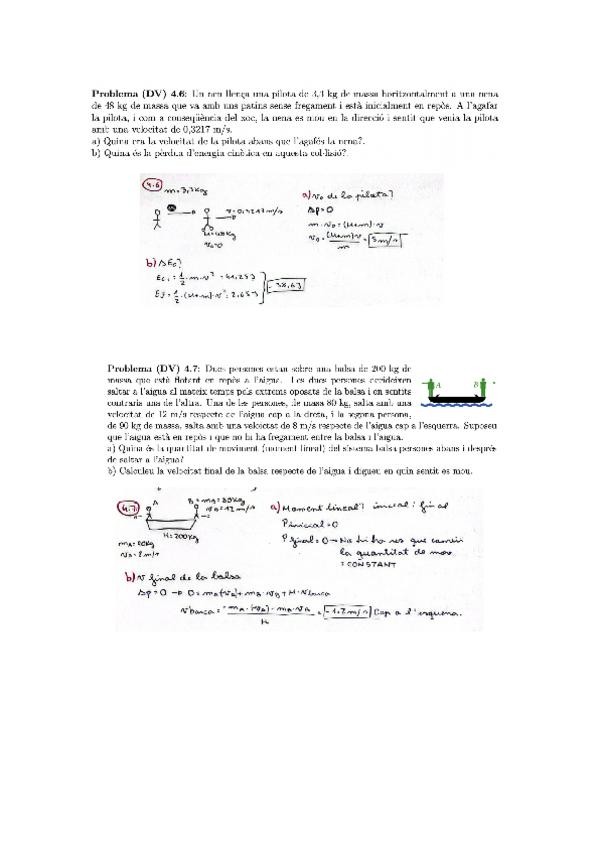 Problema (DV) 4.6: Un neu llença una pilota de 3,3 kg de massa horitzontalment a una nena
de 48 kg de massa que va amb uns patins sense fregament i està inicialment en repòs. A l'agafar
la pilota, i com a conseqüència del xoc, la nena es mou en la direcció i sentit que venia la pilota
amb una velocitat de 0,3217 m/s.
a) Quina era la velocitat de la pilota abans que l'agafés la nena?.
b) Quina és la pèrdua d'energia cinètica en aquesta col·lisió?.
4.6
m=3,3kg
a) v₀ de la pilota?
v=0,3217 m/s
Δp=0
M=48kg
m·v₀=(M+m)·v
v₀=0
v₀=(M+m)·v/m=5m/s
b) ΔEc?
Ec₁=1/2·m·v²=41,253
Ef=1/2·(M+m)·v²=2,653
-38,63
Problema (DV) 4.7: Dues persones estan sobre una balsa de 200 kg de
massa que està flotant en repòs a l'aigua. Les dues persones decideixen
saltar a l'aigua al mateix temps pels extrems oposats de la balsa i en sentits
contraris una de l'altra. Una de les persones, de masa 80 kg, salta amb una
velocitat de 12 m/s respecte de l'aigua cap a la dreta, i la segona persona,
de 90 kg de massa, salta amb una velocitat de 8 m/s respecte de l'aigua cap a l'esquerra. Suposeu
que l'aigua està en repòs i que no hi ha fregament entre la balsa i l'aigua.
a) Quina és la quantitat de moviment (moment lineal) del sistema balsa persones abans i després
de saltar a l'aigua?
b) Calculeu la velocitat final de la balsa respecte de l'aigua i digueu en quin sentit es mou.
A
B
4.7
A
B=mB=80kg
vB=12m/s
a) Moment lineal? inicial i final
Pinicial=0
M=200kg
mA=90kg
vA=8m/s
Pfinal=0→No hi ha res que canvii
la quantitat de mov
=CONSTANT
b) v final de la balsa
Δp=0→0=mA(vA)+mB·vB+M·Vbarca
Vbarca=-mA·(vA)-mB·vB/M=-1,2m/s Cap a l'esquerra.